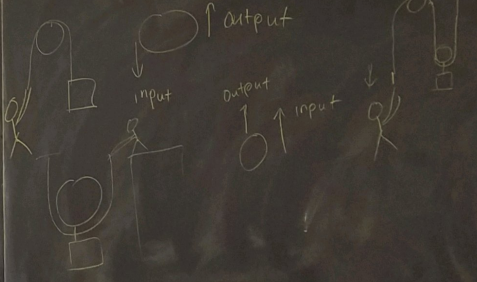 output
input
output
input